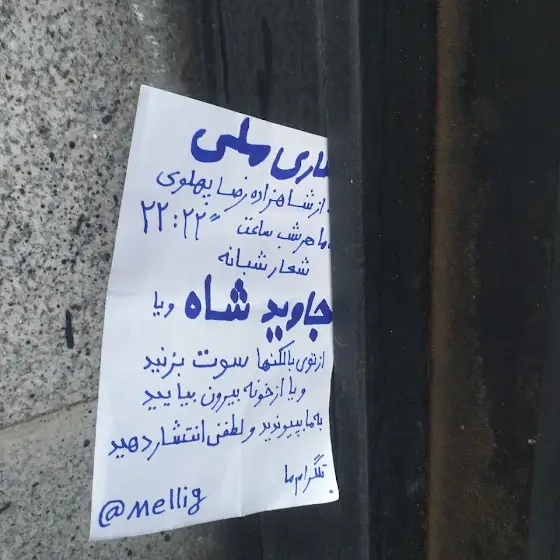 ملی
از شاهزاده رضا پهلوی
ما هر شب ساعت "۲۲:۲۲
شعار شبانه
جاوید شاه ویا
از توی بالکنها سوت بزنید
و یا از خونه بیرون بیایید
به ما بپیوندید و لطفن انتشار دهید
تلگرام ما
@mellig